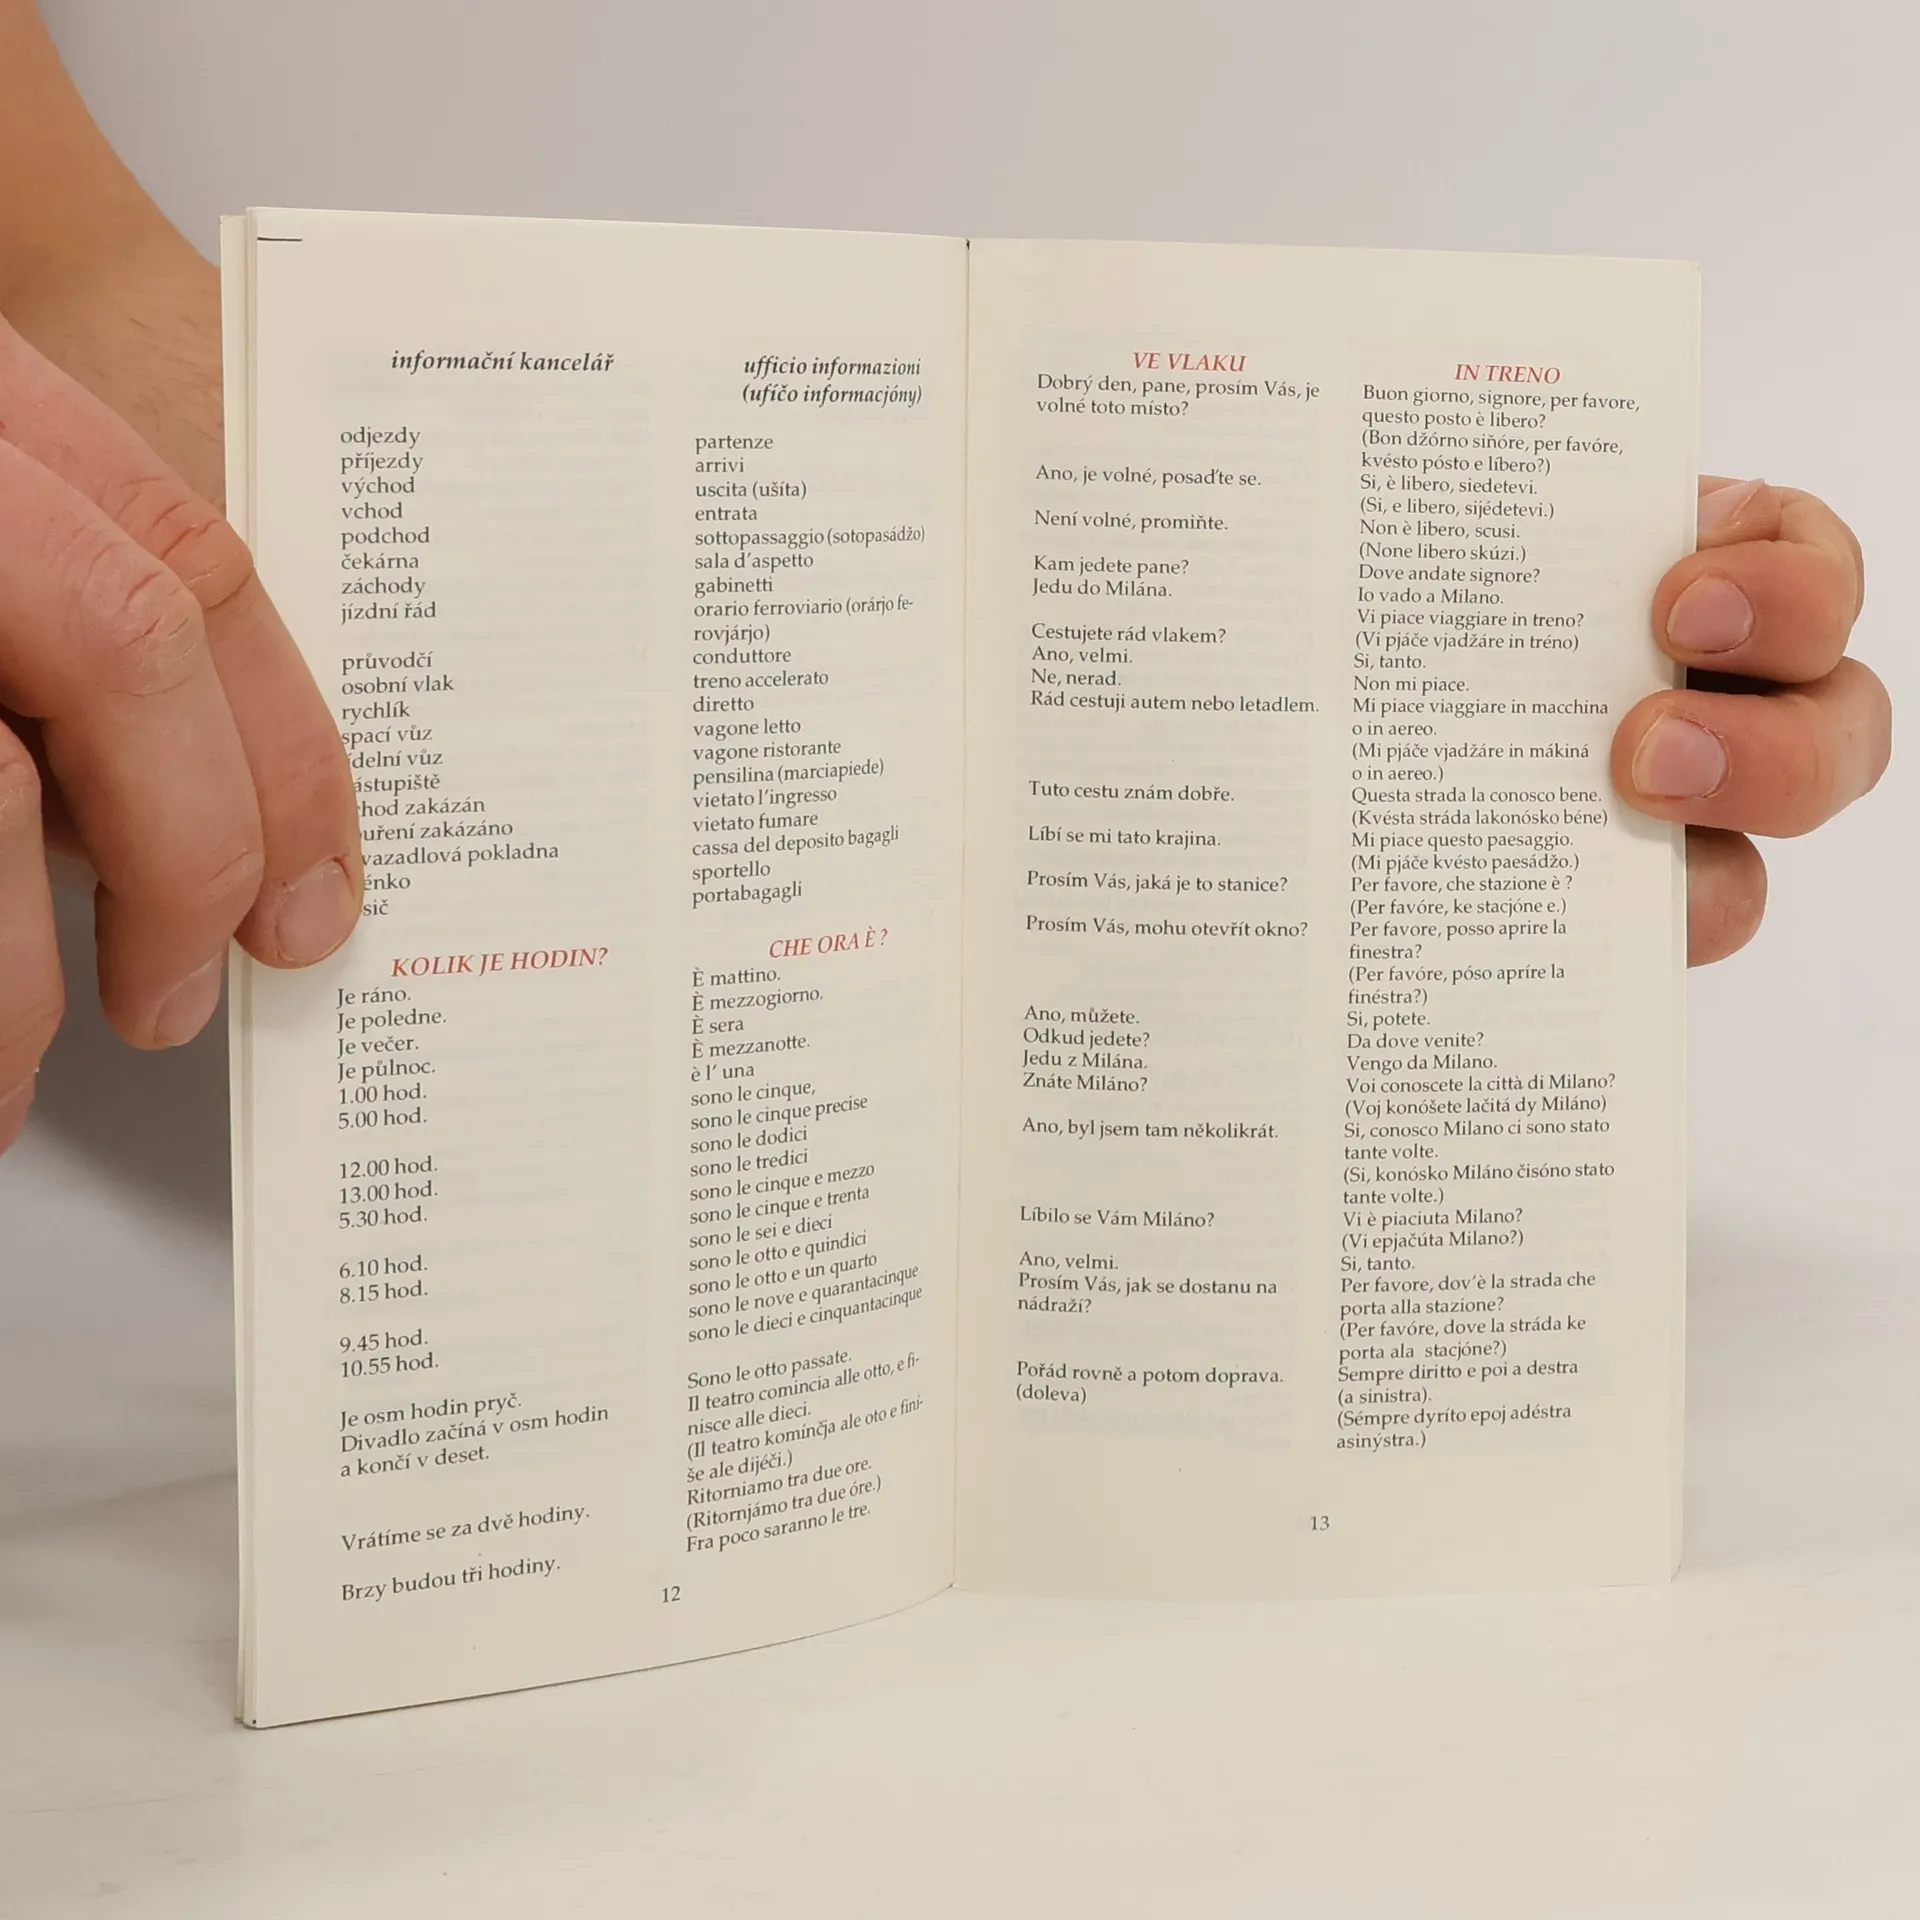 informační kancelář
odjezdy
příjezdy
východ
vchod
podchod
čekárna
záchody
jízdní řád
průvodčí
osobní vlak
rychlík
spací vůz
vůz
zakázán
zakázáno
pokladna
KOLIK JE HODIN?
Je ráno.
Je poledne.
Je večer.
Je půlnoc.
1.00 hod.
5.00 hod.
12.00 hod.
13.00 hod.
5.30 hod.
6.10 hod.
8.15 hod.
9.45 hod.
10.55 hod.
Je osm hodin pryč.
Divadlo začíná v osm hodin
a končí v deset.
Vrátíme se za dvě hodiny.
Brzy budou tři hodiny.
ufficio informazioni
(ufíčo informacjóny)
partenze
arrivi
uscita (ušíta)
entrata
sottopassaggio (sotopasádžo)
sala d'aspetto
gabinetti
orario ferroviario (orárjo fe-
rovjárjo)
conduttore
treno accelerato
diretto
vagone letto
vagone ristorante
pensilina (marciapiede)
vietato l'ingresso
vietato fumare
cassa del deposito bagagli
sportello
portabagagli
CHE ORA È ?
È mattino.
È mezzogiorno.
È sera
È mezzanotte.
è l' una
sono le cinque,
sono le cinque precise
sono le dodici
sono le tredici
sono le cinque e mezzo
sono le cinque e trenta
sono le sei e dieci
sono le otto e quindici
sono le otto e un quarto
sono le nove e quarantacinque
sono le dieci e cinquantacinque
Sono le otto passate.
Il teatro comincia alle otto, e fi-
nisce alle dieci.
(Il teatro komínčja ale oto e finí-
še ale dijéči.)
Ritorniamo tra due ore.
(Ritornjámo tra due óre.)
Fra poco saranno le tre.
12
VE VLAKU
Dobrý den, pane, prosím Vás, je
volné toto místo?
Ano, je volné, posaďte se.
Není volné, promiňte.
Kam jedete pane?
Jedu do Milána.
Cestujete rád vlakem?
Ano, velmi.
Ne, nerad.
Rád cestuji autem nebo letadlem.
Tuto cestu znám dobře.
Líbí se mi tato krajina.
Prosím Vás, jaká je to stanice?
Prosím Vás, mohu otevřít okno?
Ano, můžete.
Odkud jedete?
Jedu z Milána.
Znáte Miláno?
Ano, byl jsem tam několikrát.
Líbilo se Vám Miláno?
Ano, velmi.
Prosím Vás, jak se dostanu na
nádraží?
Pořád rovně a potom doprava.
(doleva)
IN TRENO
Buon giorno, signore, per favore,
questo posto è libero?
(Bon džórno siňóre, per favóre,
kvésto pósto e líbero?)
Si, è libero, siedetevi.
(Si, e libero, sijédetevi.)
Non è libero, scusi.
(None libero skúzi.)
Dove andate signore?
Io vado a Milano.
Vi piace viaggiare in treno?
(Vi pjáče vjadžáre in tréno)
Si, tanto.
Non mi piace.
Mi piace viaggiare in macchina
o in aereo.
(Mi pjáče vjadžáre in mákiná
o in aereo.)
Questa strada la conosco bene.
(Kvésta stráda lakonósko béne)
Mi piace questo paesaggio.
(Mi pjáče kvésto paesádžo.)
Per favore, che stazione è ?
(Per favóre, ke stacjóne e.)
Per favore, posso aprire la
finestra?
(Per favóre, póso apríre la
finéstra?)
Si, potete.
Da dove venite?
Vengo da Milano.
Voi conoscete la città di Milano?
(Voj konóšete lačitá dy Miláno)
Si, conosco Milano ci sono stato
tante volte.
(Si, konósko Miláno čisóno stato
tante volte.)
Vi è piaciuta Milano?
(Vi epjačúta Milano?)
Si, tanto.
Per favore, dov'è la strada che
porta alla stazione?
(Per favóre, dove la stráda ke
porta ala stacjóne?)
Sempre diritto e poi a destra
(a sinistra).
(Sémpre dyríto epoj adéstra
asinýstra.)
13